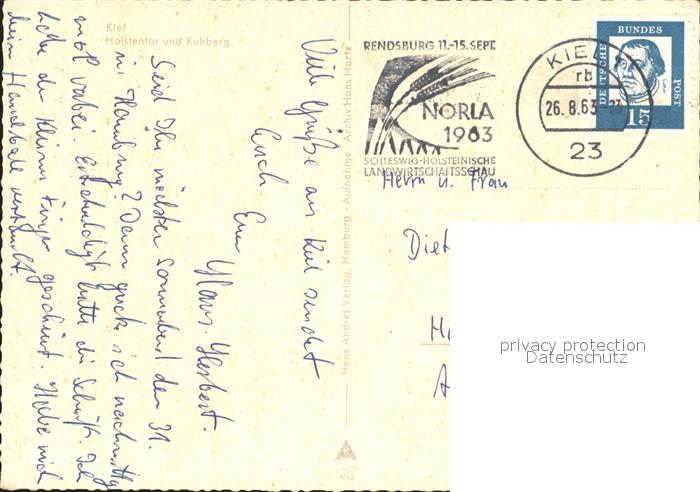 Kiel
Holstentor und Kuhberg
Viele Grüße aus Kiel sendet
Euch Euer
Klaus-Herbert.
Seid Ihr nächsten Sonnabend den 31.
in Hamburg? Dann guck ich nachmittag
mal vorbei. Entschuldigt bitte die Schrift. Ich
habe den kleinen Finger geschient. Habe mich
beim Handball verknackst.
Hans Andres Verlag, Hamburg - Aufnahme - Archiv Hans Hartz
ANCO
RENDSBURG 11.-15. SEPT.
NORLA
1963
SCHLESWIG-HOLSTEINISCHE
LANDWIRTSCHAFTSSCHAU
KIEL
rb
26.8.63
23
DEUTSCHE
BUNDES
POST
Luther
15
Herrn u. Frau
Diet
H
A
privacy protection
Datenschutz